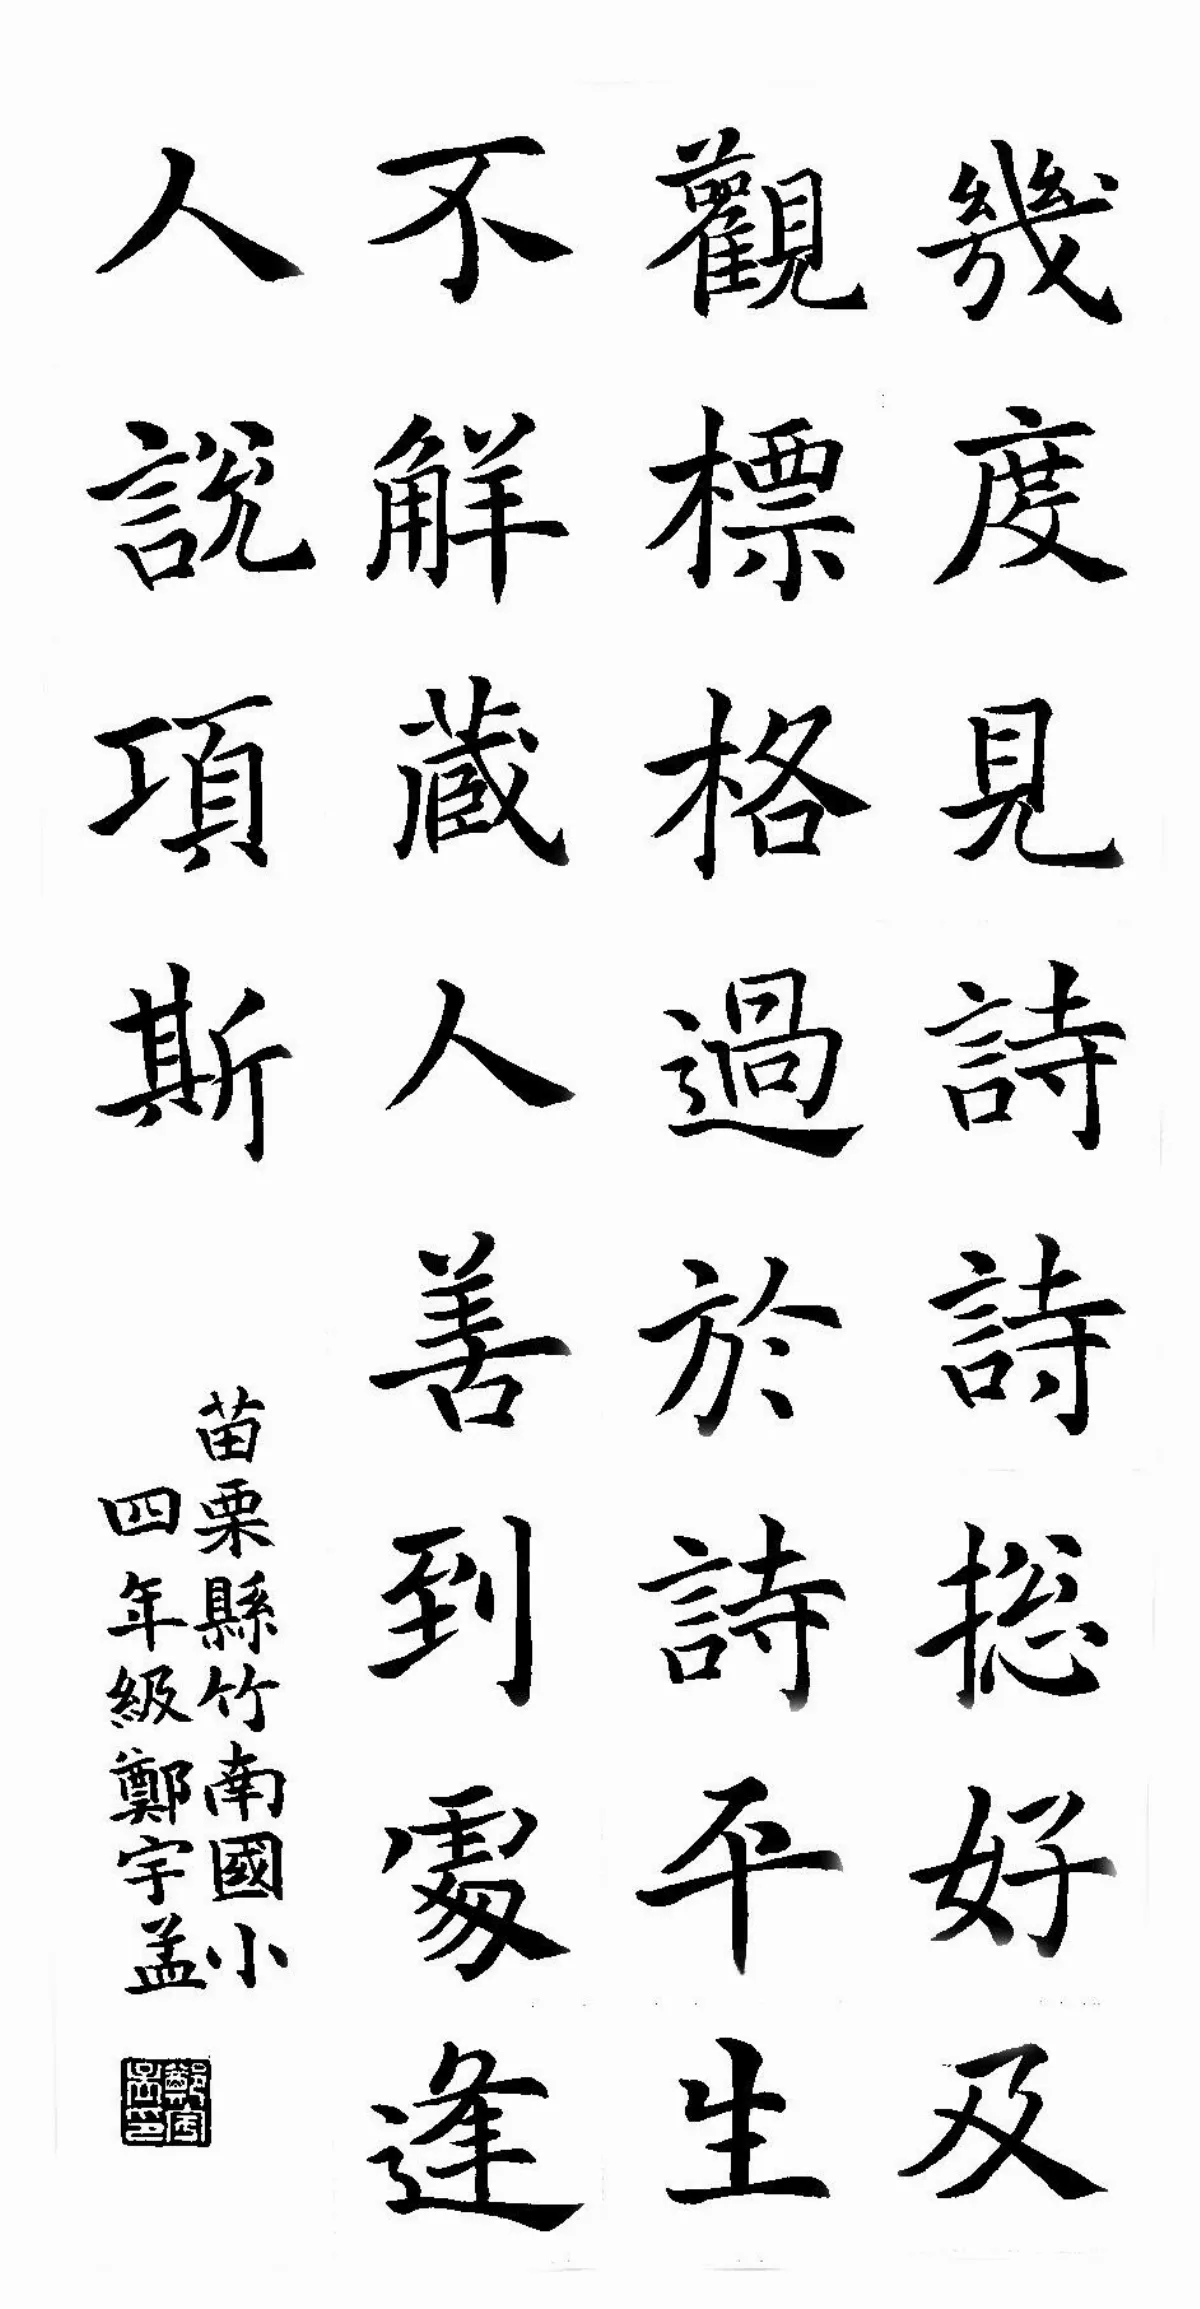 幾度見詩詩揔好及
觀標格過於詩平生
不解藏人善到處逢
人說項斯
苗栗縣竹南國小
四年級鄭宇孟